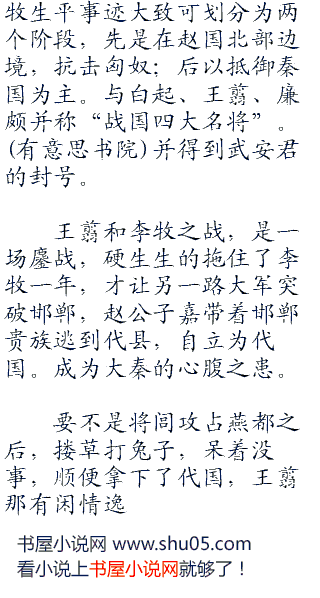 牧生平事迹大致可划分为两
个阶段，先是在赵国北部边
境，抗击匈奴；后以抵御秦
国为主。与白起、王翦、廉
颇并称“战国四大名将”。
(有意思书院)并得到武安君
的封号。
王翦和李牧之战，是一
场鏖战，硬生生的拖住了李
牧一年，才让另一路大军突
破邯郸，赵公子嘉带着邯郸
贵族逃到代县，自立为代
国。成为大秦的心腹之患。
要不是将闾攻占燕都之
后，搂草打兔子，呆着没
事，顺便拿下了代国，王翦
那有闲情逸
书屋小说网 www.shu05.com
看小说上书屋小说网就够了！